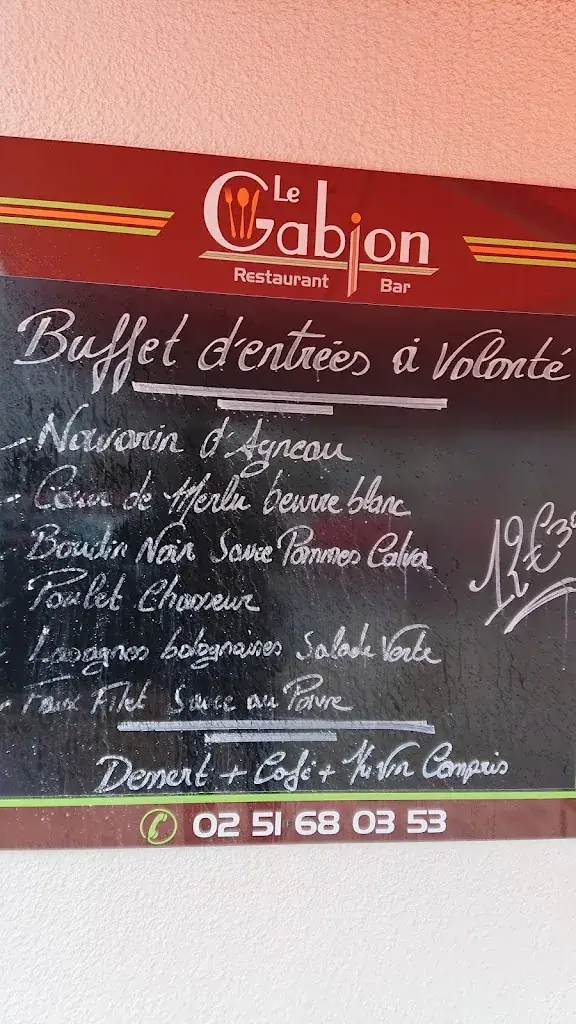 Le
Gabion
Restaurant Bar
Buffet d'entrées à Volonté
- Navarin d'Agneau
- Cœur de Merlu beurre blanc
- Boudin Noir Sauce Pommes Calva
- Poulet Chasseur
- Lasagnes bolognaises Salade Verte
- Faux Filet Sauce au Poivre
12€30
Dessert + Café + 1/4 Vin Compris
02 51 68 03 53